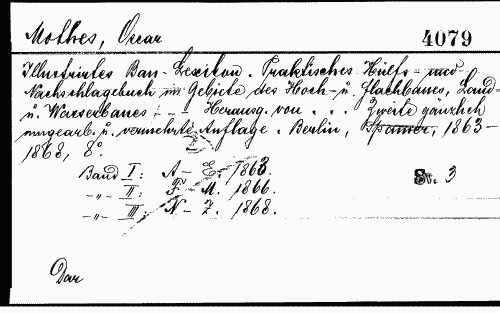 Mothes, Oscar
4079
Illustrirtes Bau-Lexikon. Praktisches Hülfs- und
Nachschlagebuch im Gebiete des Hoch- u. Flachbaues, Land-
u. Wasserbaues . - - Herausg. von . . . Zweite gänzlich
umgearb. u. vermehrte Auflage. Berlin, Spamer, 1863-
1868, 8°.
Band I: A - E. 1863.
-„- II: F - M. 1866.
-„- III: N - Z. 1868.
3